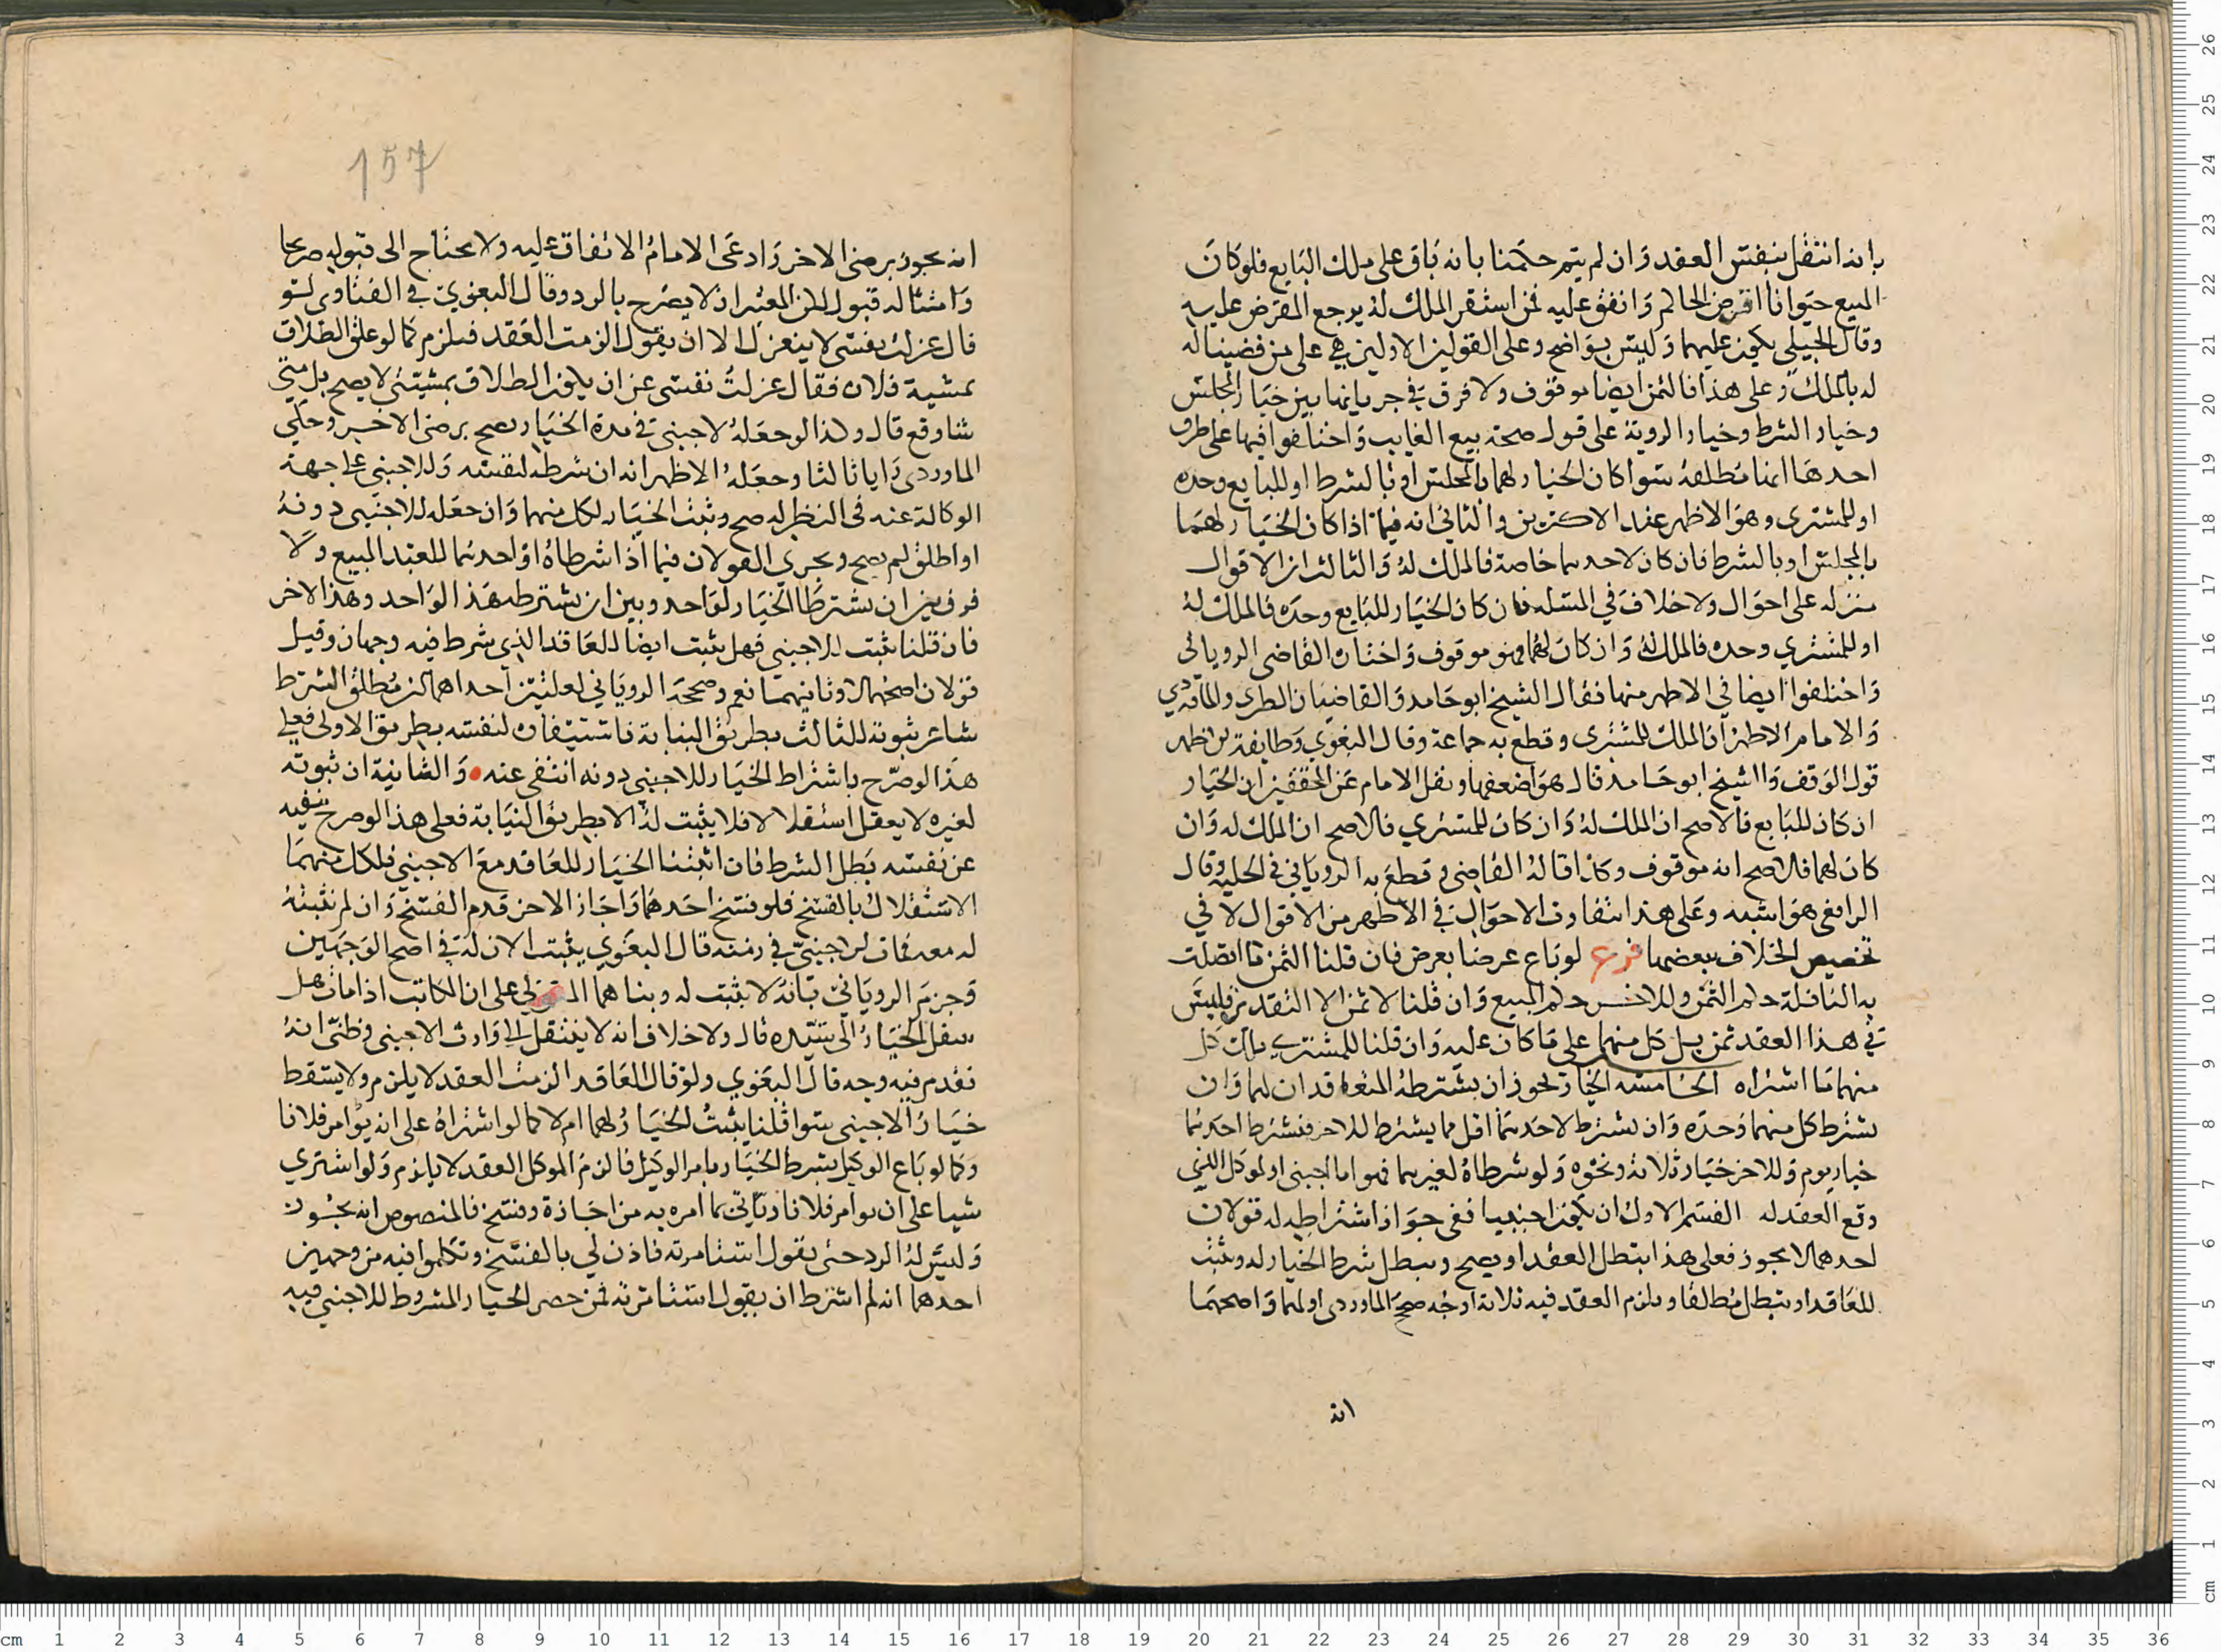 بانه انتقل بنفس العقد وان لم يتم حكمنا بانه باق على ملك البايع فلو كان
المبيع حيوانا اقرض الحاكم وانفق عليه فمن استقر الملك له يرجع المقرض عليه
وقال الجيلي يكون عليهما وليس بواضح وعلى القولين الاولين هي على من قضينا له
له بالملك وعلى هذا فالثمن ايضا موقوف ولا فرق في جريانها بين خيار المجلس
وخيار الشرط وخيار الروية على قول صحة بيع الغايب واختلفوا فيها على طرق
احدها انها مطلقة سوا كان الخيار لهما بالمجلس او بالشرط او للبايع وحده
او للمشتري وهو الاظهر عند الاكثرين والثاني انه فيما اذا كان الخيار لهما
بالمجلس او بالشرط فان كان لاحدهما خاصة فالملك له والثالث ان الاقوال
منزله على احوال ولا خلاف في المسله فان كان الخيار للبايع وحده فالملك له
او للمشتري وحده فالملك له وان كان لهما فهو موقوف واختاره القاضي الروياني
واختلفوا ايضا في الاظهر منها فقال الشيخ ابو حامد والقاضيان الطبري والماوردي
والامام الاظهر ان الملك للمشتري وقطع به جماعة وقال البغوي وطايفة ان اظهر
قول الوقف والشيخ ابو حامد قال هو اضعفها ونقل الامام عن المحققين ان الخيار
ان كان للبايع فالاصح ان الملك له وان كان للمشتري فالاصح ان الملك له وان
كان لهما فالاصح انه موقوف وكذا قاله القاضي وقطع به الروياني في الحليه وقال
الرافعي هو اشبه وعلى هذا تتفاوت الاحوال في الاظهر من الاقوال لا في
تخصيص الخلاف ببعضها فرع لو باع عرضا بعرض فان قلنا الثمن ما اتصلت
به الباء فله حكم الثمن وللاخر حكم المبيع وان قلنا لا ثمن الا النقد فليس
في هذا العقد ثمن بل كل منهما على ما كان عليه وان قلنا للمشتري ملك كل
منهما ما اشتراه الخامسه الخيار يجوز ان يشترطه المتعاقدان لهما وان
يشترط كل منهما وحده وان يشترط لاحدهما اقل مما يشترط للاخر فيشترط احدهما
خيار يوم وللاخر خيار ثلاثه ونحوه ولو شرطاه لغيرهما فهو اما اجنبي او لموكل الذي
وقع العقد له القسم الاول ان يكون اجنبيا ففي جواز اشتراطه له قولان
احدهما لا يجوز فعلى هذا ابتطل العقد او يصح ويبطل شرط الخيار له ويثبت
للعاقد او يبطل مطلقا ويلزم العقد فيه ثلاثة اوجه صحح الماوردي اولهما واصحهما
انه
157
انه يجوز برضى الاخر وادعى الامام الاتفاق عليه ولا يحتاج الى قبوله صريحا
وامتثاله قبول لكن المعتبر ان لا يصرح بالرد وقال البغوي في الفتاوى لو
قال عزلت نفسي لا ينعزل الا ان يقول الزمت العقد فيلزم كما لو علق الطلاق
بمشية فلان فقال عزلت نفسي عن ان يكون الطلاق بمشيتي لا يصح بل متى
شا وقع قال وكذا لو جعله لاجنبي في مدة الخيار يصح برضى الاخر وحكي
الماوردي رايا ثالثا وجعله الاظهر انه ان شرطه لنفسه وللاجنبي على جهة
الوكالة عنه في النظر له صح وثبت الخيار لكل منهما وان جعله للاجنبي دونه
او اطلق لم يصح ويجري القولان فيما اذا شرطاه او احدهما للعبد المبيع ولا
فرق بين ان يشترطا الخيار لواحد وبين ان يشترطه هذا الواحد وهذا الاخر
فان قلنا يثبت للاجنبي فهل يثبت ايضا للعاقد الذي شرط فيه وجهان وقيل
قولان اصحهما لا وثانيهما نعم وصححه الروياني لعلتين احداهما ان مطلق الشرط
شاعر بثبوته للثالث بطريق النيابة فاستتبعاه لنفسه بطريق الاولى فعلى
هذا لو صرح باشتراط الخيار للاجنبي دونه انتفى عنه والثانية ان ثبوته
لغيره لا يعقل استقلالا فلا يثبت له الا بطريق النيابة فعلى هذا لو صرح بنفيه
عن نفسه بطل الشرط فان اثبتنا الخيار للعاقد مع الاجنبي فلكل منهما
الاستقلال بالفسخ فلو فسخ احدهما واجاز الاخر قدم الفسخ وان لم نثبته
له معه فمات الاجنبي في زمنه قال البغوي يثبت الان له في اصح الوجهين
وجزم الروياني بانه لا يثبت له وبناهما المتولي على ان المكاتب اذا مات هل
ينتقل الخيار الى سيده قال ولا خلاف انه لا ينتقل الى وارث الاجنبي وظني انه
تقدم فيه وجه قال البغوي ولو قال العاقد الزمت العقد لا يلزم ولا يسقط
خيار الاجنبي سوا قلنا يثبت الخيار لهما ام لا كما لو اشتراه على انه يوامر فلانا
وكما لو باع الوكيل بشرط الخيار بامر الوكيل فالزم الموكل العقد لا يلزم ولو اشتري
شيا على ان يوامر فلانا وياتي بما امره به من اجازة وفسخ فالمنصوص انه يجوز
وليس له الرد حتى يقول استامرته فاذن لي بالفسخ وتكلموا فيه من وجهين
احدهما انه لم اشترط ان يقول استامرته فمن حصر الخيار المشروط للاجنبي فيه